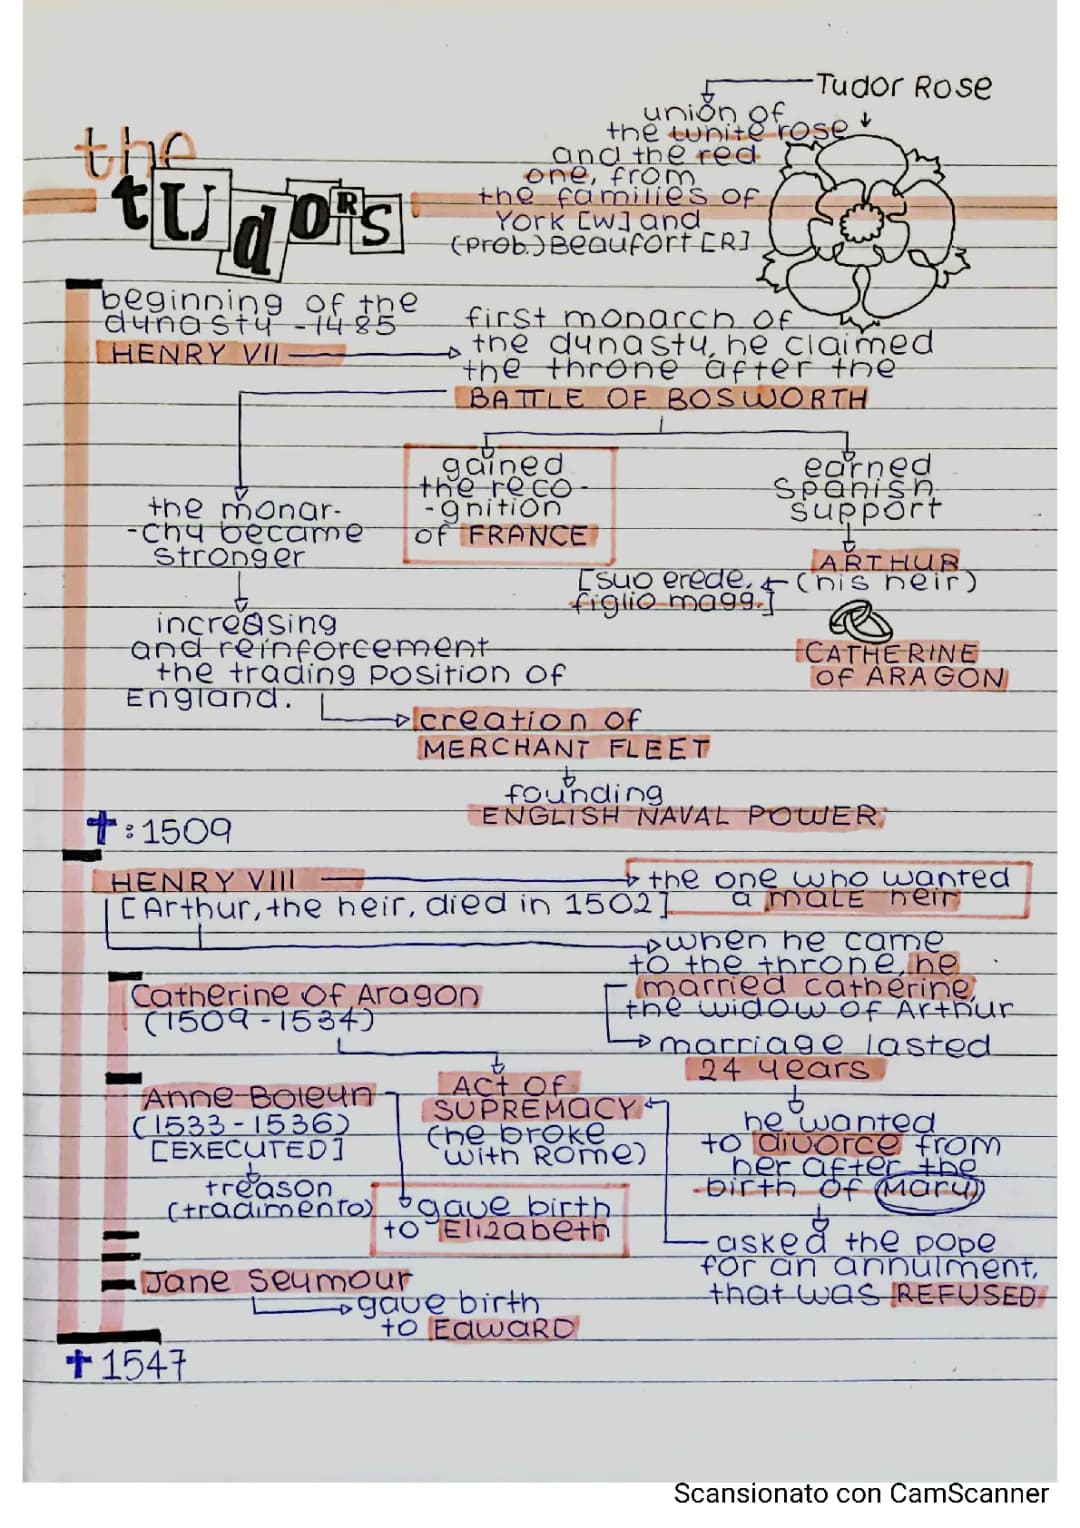 Tudor Rose
union of
the white rose
and the red
one, from
the families of
York [W] and
(prob.) Beaufort [R]
the
tudoRs
beginning of the
dynasty - 1485
HENRY VII
first monarch of
the dynasty, he claimed
the throne after the
BATTLE OF BOSWORTH
gained
the reco-
-gnition
of FRANCE
earned
Spanish
support
ARTHUR
(his heir)
[suo erede,
figlio magg.]
CATHERINE
of ARAGON
the monar-
-chy became
stronger
increasing
and reinforcement
the trading position of
England.
creation of
MERCHANT FLEET
founding
ENGLISH NAVAL POWER
✝: 1509
HENRY VIII
[Arthur, the heir, died in 1502]
the one who wanted
a male heir
when he came
to the throne, he
married Catherine,
the widow of Arthur
marriage lasted
24 years
Catherine of Aragon
(1509-1534)
Act of
SUPREMACY
(he broke
with Rome)
he wanted
to divorce from
her after the
birth of Mary
asked the pope
for an annulment,
that was REFUSED
Anne Boleyn
(1533-1536)
[EXECUTED]
treason
(tradimento)
gave birth
to Elizabeth
Jane Seymour
gave birth
to EdwARD
✝ 1547
Scansionato con CamScanner